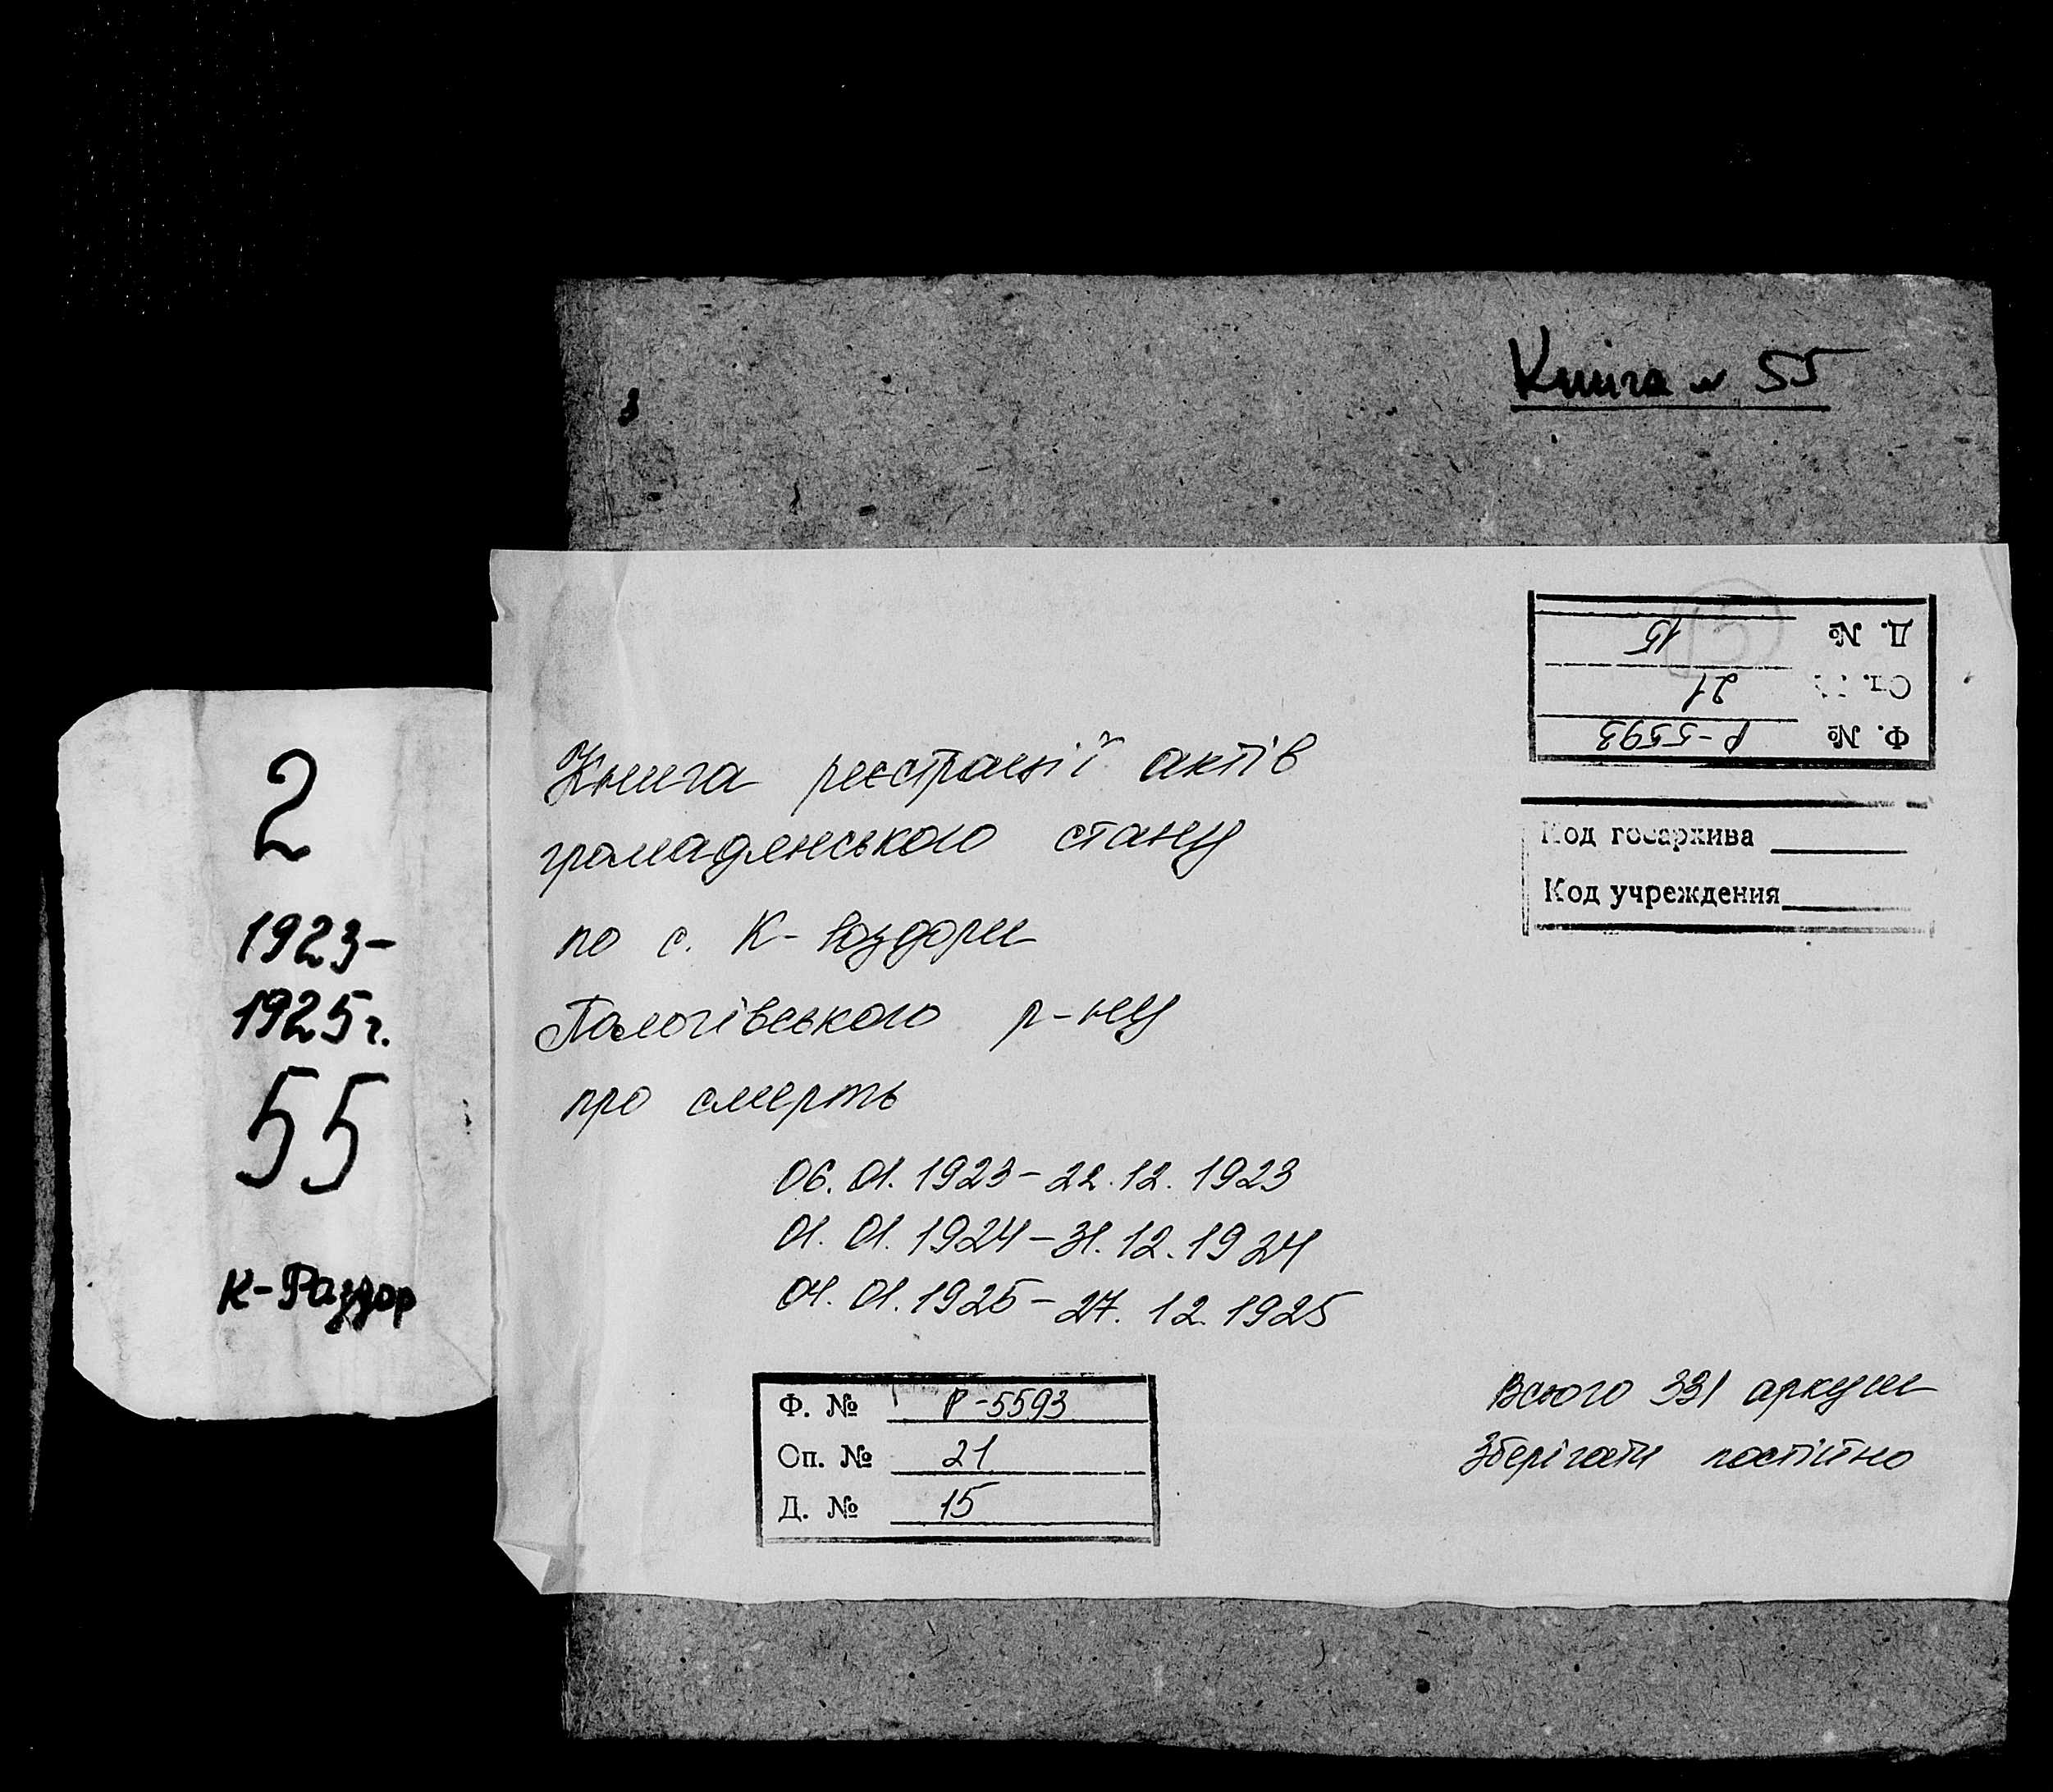 Книга № 55
Д. № 15
Оп. № 21
Ф. № Р-5593
Код госархива
Код учреждения
Книга реєстрації актів
громадянського стану
по с. К-Роздори
Пологівського р-ну
про смерть
06.01.1923-22.12.1923
01.01.1924-31.12.1924
04.01.1925-27.12.1925
Ф. № Р-5593
Оп. № 21
Д. № 15
Всього 331 аркуш
Зберігати постійно
2
1923-
1925г.
55
К-Раздор